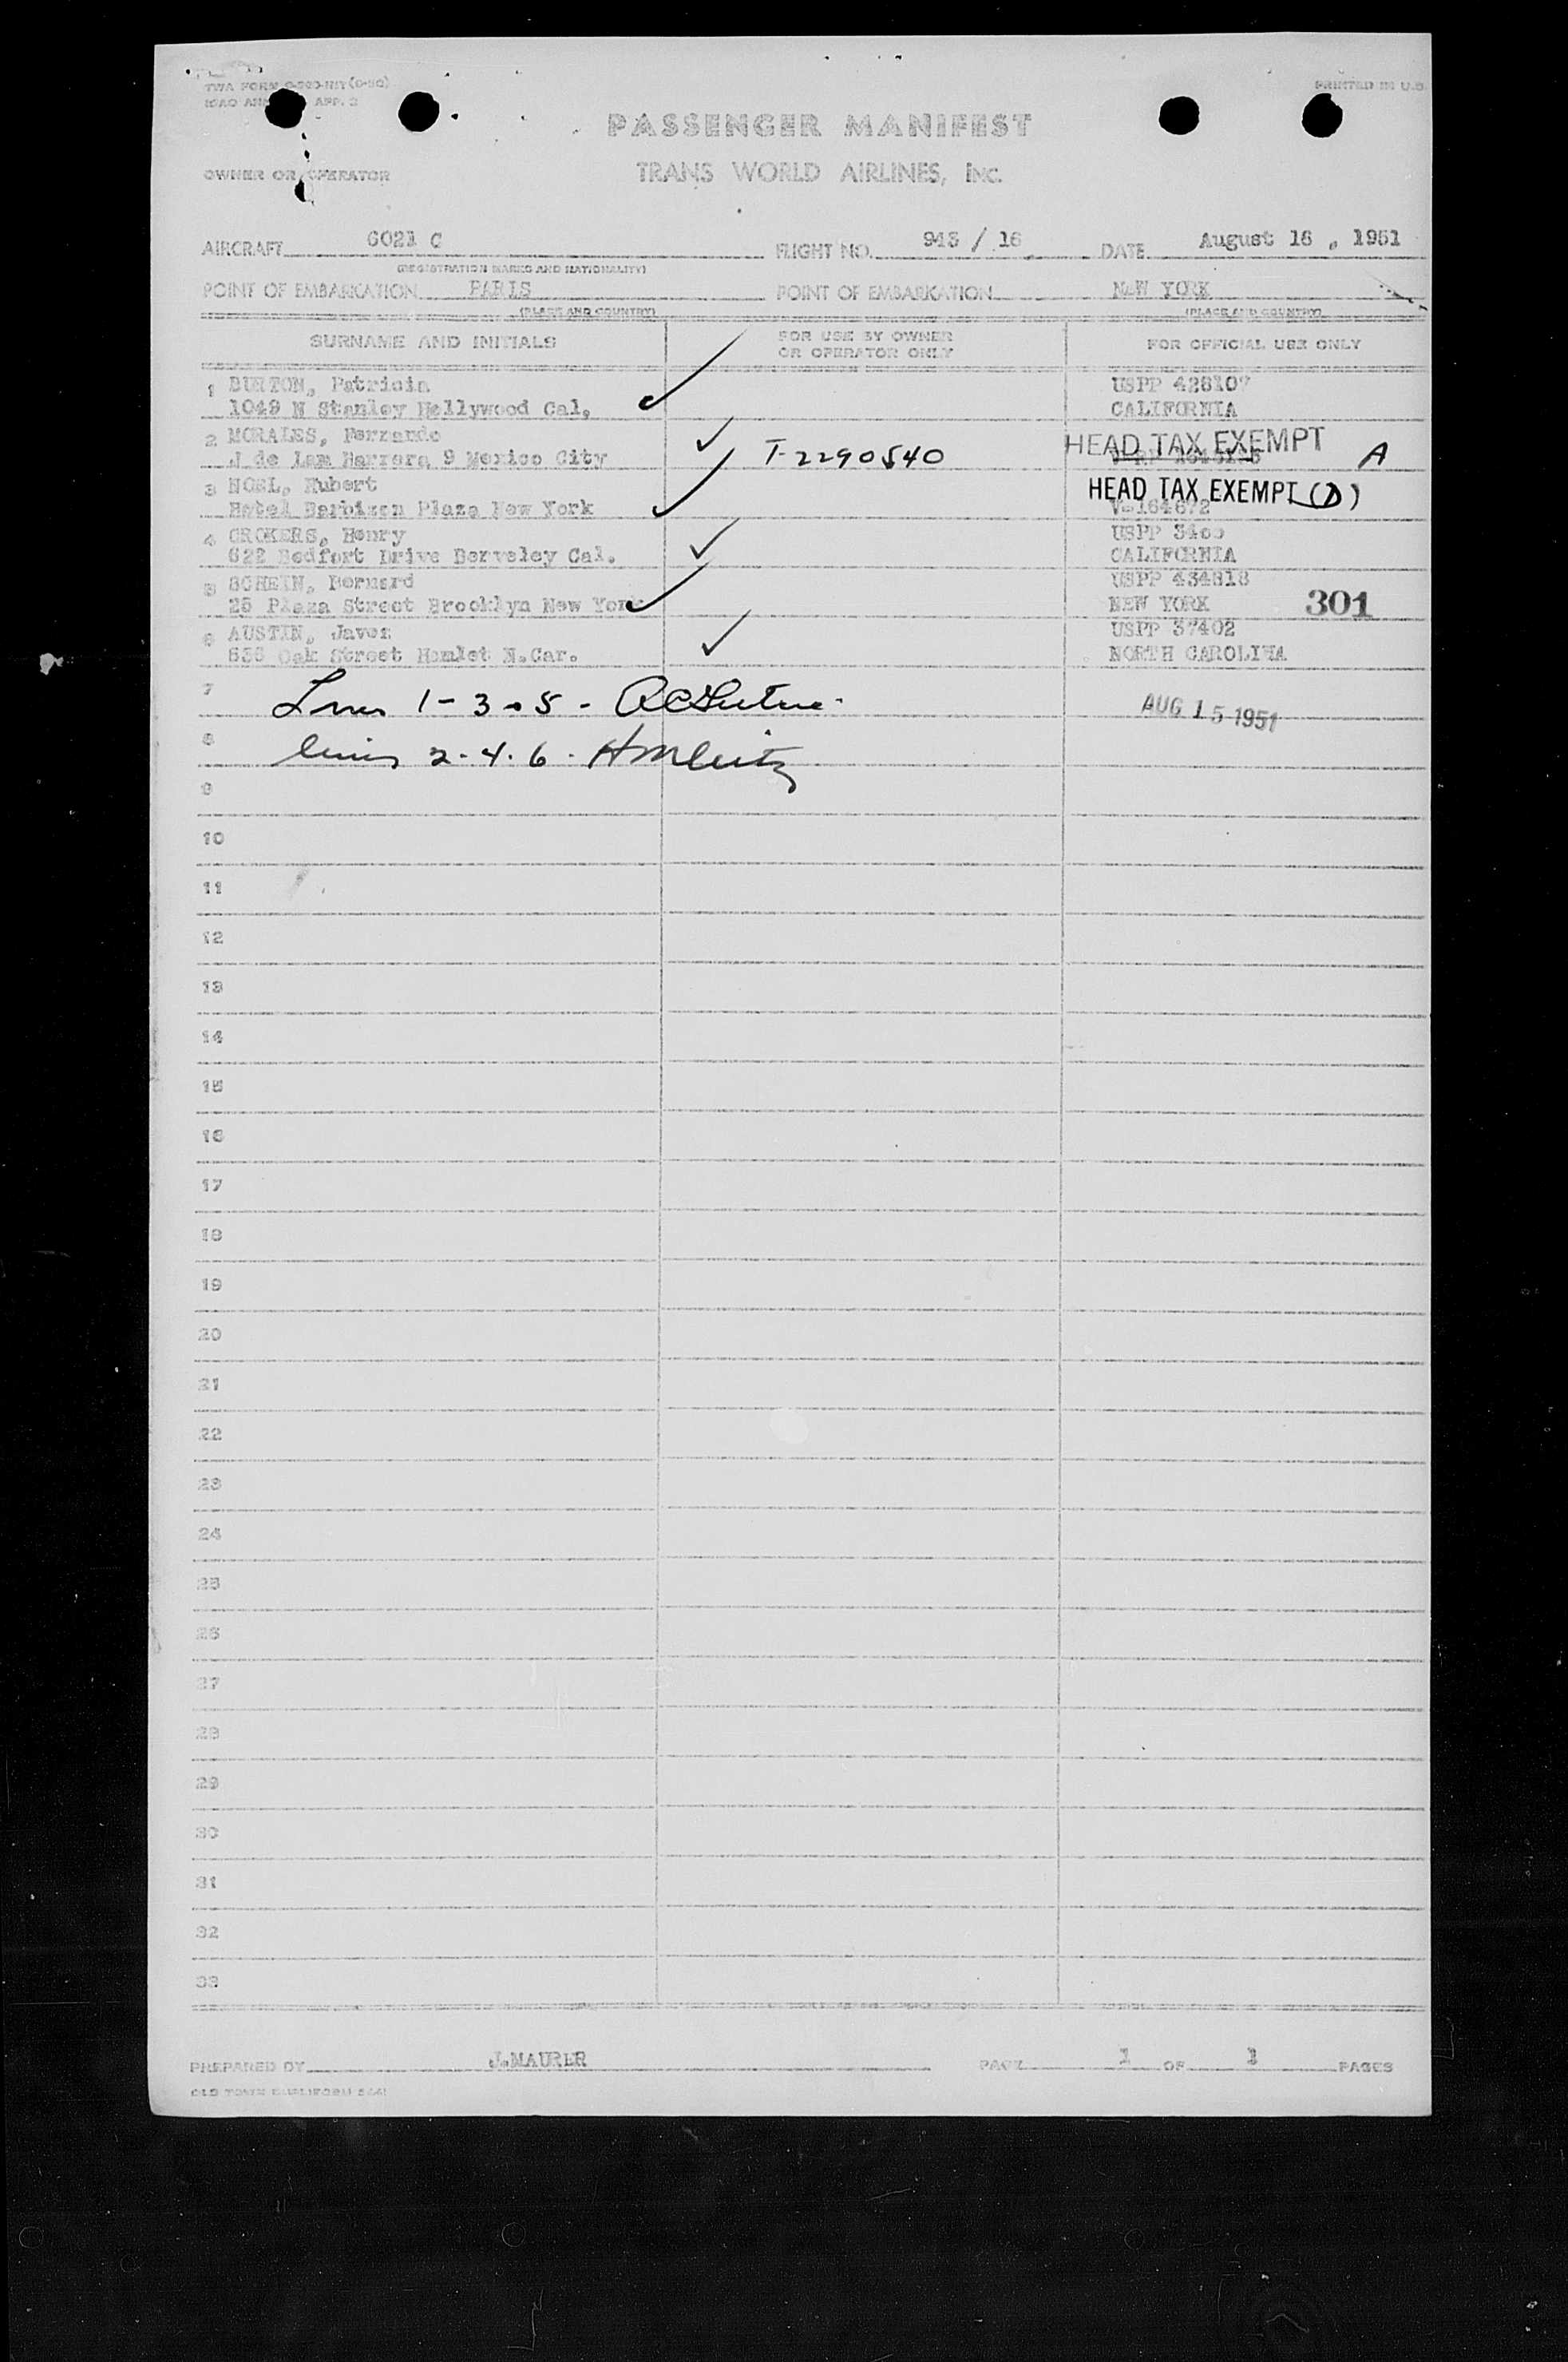 TWA FORM
PRINTED IN U.S.
ICAO APP. 2
PASSENGER MANIFEST
OWNER OR OPERATOR
TRANS WORLD AIRLINES, INC.
AIRCRAFT 6021 C FLIGHT NO. 943 / 16 DATE August 16 , 1951
(REGISTRATION MARKS AND NATIONALITY)
POINT OF EMBARKATION PARIS POINT OF EMBARKATION NEW YORK
(PLACE AND COUNTRY) (PLACE AND COUNTRY)
SURNAME AND INITIALS FOR USE BY OWNER OR OPERATOR ONLY FOR OFFICIAL USE ONLY
1 BURTON, Patricia USPP 428107
1049 N Stanley Hollywood Cal, CALIFORNIA
2 MORALES, Fernando HEAD TAX EXEMPT
J de Lam Barrera 9 Mexico City T-2290540 A
3 NOEL, Hubert HEAD TAX EXEMPT (D)
Hotel Barbizon Plaza New York V-164672
4 CROKERS, Henry USPP
622 Bedfort Drive Berveley Cal. CALIFORNIA
5 SCHEIN, Bernard USPP 434818
25 Plaza Street Brooklyn New York NEW YORK 301
6 AUSTIN, Javer USPP 37402
636 Oak Street Hamlet N.Car. NORTH CAROLINA
7 Lines 1-3-5 - AUG 15 1951
8 lines 2-4-6 -
9
10
11
12
13
14
15
16
17
18
19
20
21
22
23
24
25
26
27
28
29
30
31
32
33
PREPARED BY J.MAURER PAGE 1 OF 1 PAGES
OLD TOWN